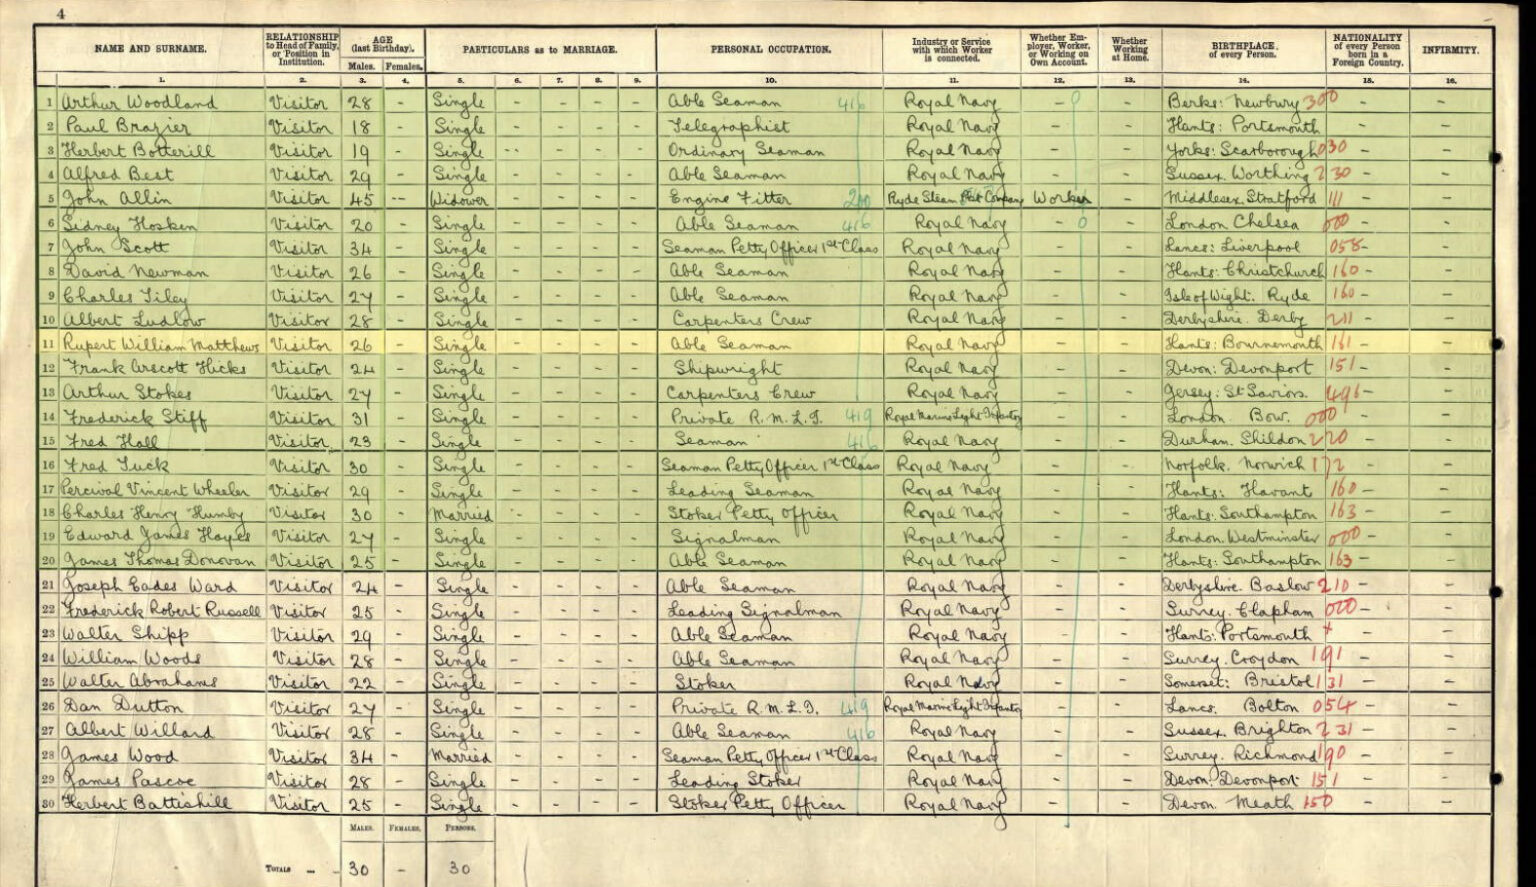 4
NAME AND SURNAME. RELATIONSHIP to Head of Family, or Position in Institution. AGE (last Birthday). Males. Females. PARTICULARS as to MARRIAGE. PERSONAL OCCUPATION. Industry or Service with which Worker is connected. Whether Employer, Worker, or Working on Own Account. Whether Working at Home. BIRTHPLACE of every Person. NATIONALITY of every Person born in a Foreign Country. INFIRMITY.
1. 2. 3. 4. 5. 6. 7. 8. 9. 10. 11. 12. 13. 14. 15. 16.
1 Arthur Woodland Visitor 28 - Single - - - - Able Seaman 416 Royal Navy - 0 - Berks: Newbury 300 - -
2 Paul Brazier Visitor 18 - Single - - - - Telegraphist Royal Navy - - Hants: Portsmouth - -
3 Herbert Botterill Visitor 19 - Single - - - - Ordinary Seaman Royal Navy - - Yorks: Scarborough 030 - -
4 Alfred Best Visitor 29 - Single - - - - Able Seaman Royal Navy - - Sussex. Worthing 230 - -
5 John Allin Visitor 45 - Widower - - - - Engine Fitter 200 Ryde Steam Company Worker - Middlesex. Stratford 111 - -
6 Sidney Hosken Visitor 20 - Single - - - - Able Seaman 416 Royal Navy - 0 - London Chelsea 000 - -
7 John Scott Visitor 34 - Single - - - - Seaman Petty Officer 1st Class Royal Navy - - Lancs: Liverpool 058 - -
8 David Newman Visitor 26 - Single - - - - Able Seaman Royal Navy - - Hants: Christchurch 160 - -
9 Charles Tiley Visitor 27 - Single - - - - Able Seaman Royal Navy - - Isle of Wight. Ryde 160 - -
10 Albert Ludlow Visitor 28 - Single - - - - Carpenters Crew Royal Navy - - Derbyshire. Derby 211 - -
11 Rupert William Matthews Visitor 26 - Single - - - - Able Seaman Royal Navy - - Hants: Bournemouth 161 - -
12 Frank Arscott Hicks Visitor 24 - Single - - - - Shipwright Royal Navy - - Devon: Devonport 151 - -
13 Arthur Stokes Visitor 27 - Single - - - - Carpenters Crew Royal Navy - - Jersey: St Saviors 496 - -
14 Frederick Stiff Visitor 31 - Single - - - - Private R.M.L.I. 419 Royal Marine Light Infantry - - London Bow. 000 - -
15 Fred Hall Visitor 23 - Single - - - - Seaman 416 Royal Navy - - Durham. Shildon 220 - -
16 Fred Tuck Visitor 30 - Single - - - - Seaman Petty Officer 1st Class Royal Navy - - Norfolk. Norwich 172 - -
17 Percival Vincent Wheeler Visitor 29 - Single - - - - Leading Seaman Royal Navy - - Hants: Havant 160 - -
18 Charles Henry Humby Visitor 30 - Married - - - - Stoker Petty Officer Royal Navy - - Hants: Southampton 163 - -
19 Edward James Hayes Visitor 27 - Single - - - - Signalman Royal Navy - - London. Westminster 000 - -
20 James Thomas Donovan Visitor 25 - Single - - - - Able Seaman Royal Navy - - Hants: Southampton 163 - -
21 Joseph Eades Ward Visitor 24 - Single - - - - Able Seaman Royal Navy - - Derbyshire. Baslow 210 - -
22 Frederick Robert Russell Visitor 25 - Single - - - - Leading Signalman Royal Navy - - Surrey. Clapham 000 - -
23 Walter Shipp Visitor 29 - Single - - - - Able Seaman Royal Navy - - Hants: Portsmouth + - -
24 William Woods Visitor 28 - Single - - - - Able Seaman Royal Navy - - Surrey. Croydon 191 - -
25 Walter Abrahams Visitor 22 - Single - - - - Stoker Royal Navy - - Somerset: Bristol 131 - -
26 Dan Dutton Visitor 27 - Single - - - - Private R.M.L.I. 419 Royal Marine Light Infantry - - Lancs. Bolton 054 - -
27 Albert Willard Visitor 28 - Single - - - - Able Seaman 416 Royal Navy - - Sussex. Brighton 231 - -
28 James Wood Visitor 34 - Married - - - - Seaman Petty Officer 1st Class Royal Navy - - Surrey. Richmond 190 - -
29 James Pascoe Visitor 28 - Single - - - - Leading Stoker Royal Navy - - Devon. Devonport 151 - -
30 Herbert Battishill Visitor 25 - Single - - - - Stoker Petty Officer Royal Navy - - Devon. Meath 150 - -
MALES. FEMALES. PERSONS.
TOTALS ... ... 30 - 30